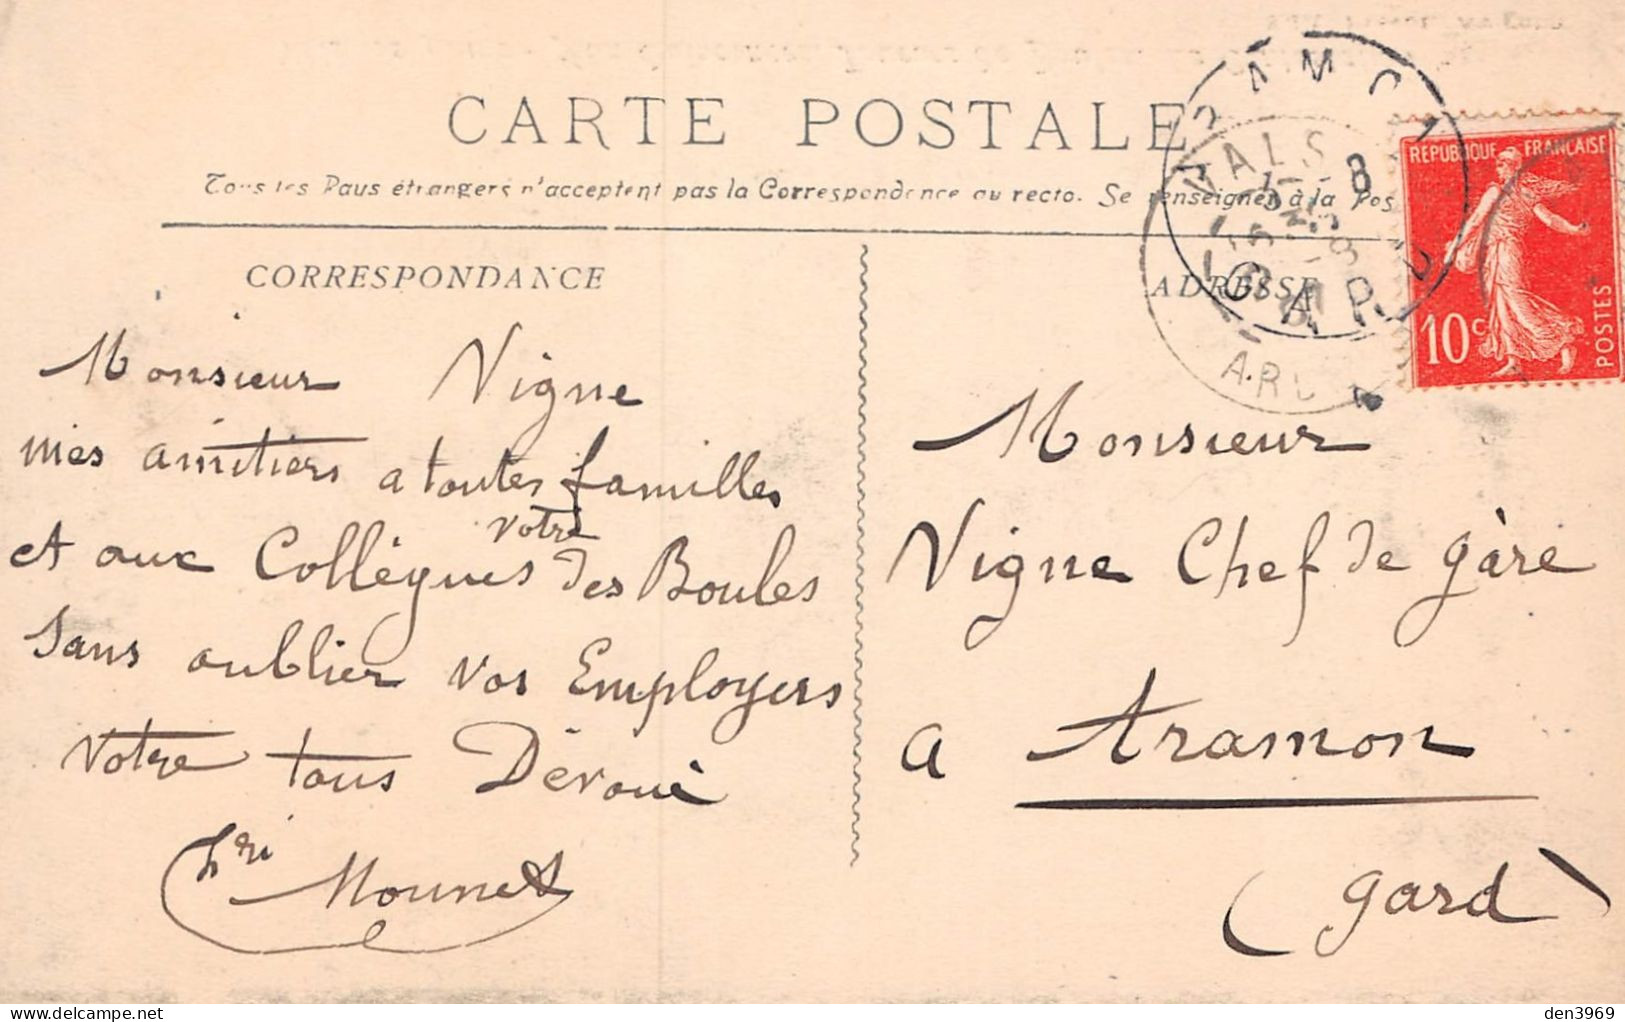 CARTE POSTALE
Tous les Pays étrangers n'acceptent pas la Correspondance au recto. Se renseigner à la Pos
CORRESPONDANCE
Monsieur Vigne
mes amitiers a toutes familles
votre
et aux Collègues des Boules
Sans oublier vos Employers
Votre tous Dévoué
hri Mounet
ADRESSE
Monsieur
Vigne Chef de gàre
a Aramon
(gard)
RÉPUBLIQUE FRANÇAISE
10c
POSTES
VALS
GARD
den3969